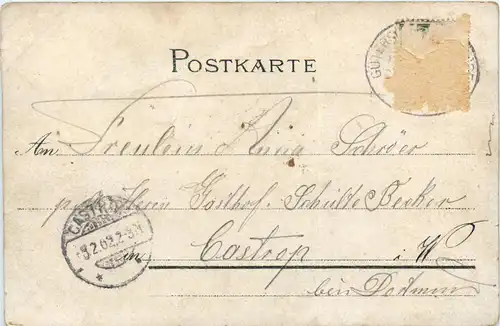 POSTKARTE
An Freulein Anna Schröer
p. Herrn Gasthof. Schulte Becker
in Castrop i. W
bei Dortmun
CASTROP
3.2.02.2-3N
GÜTERS